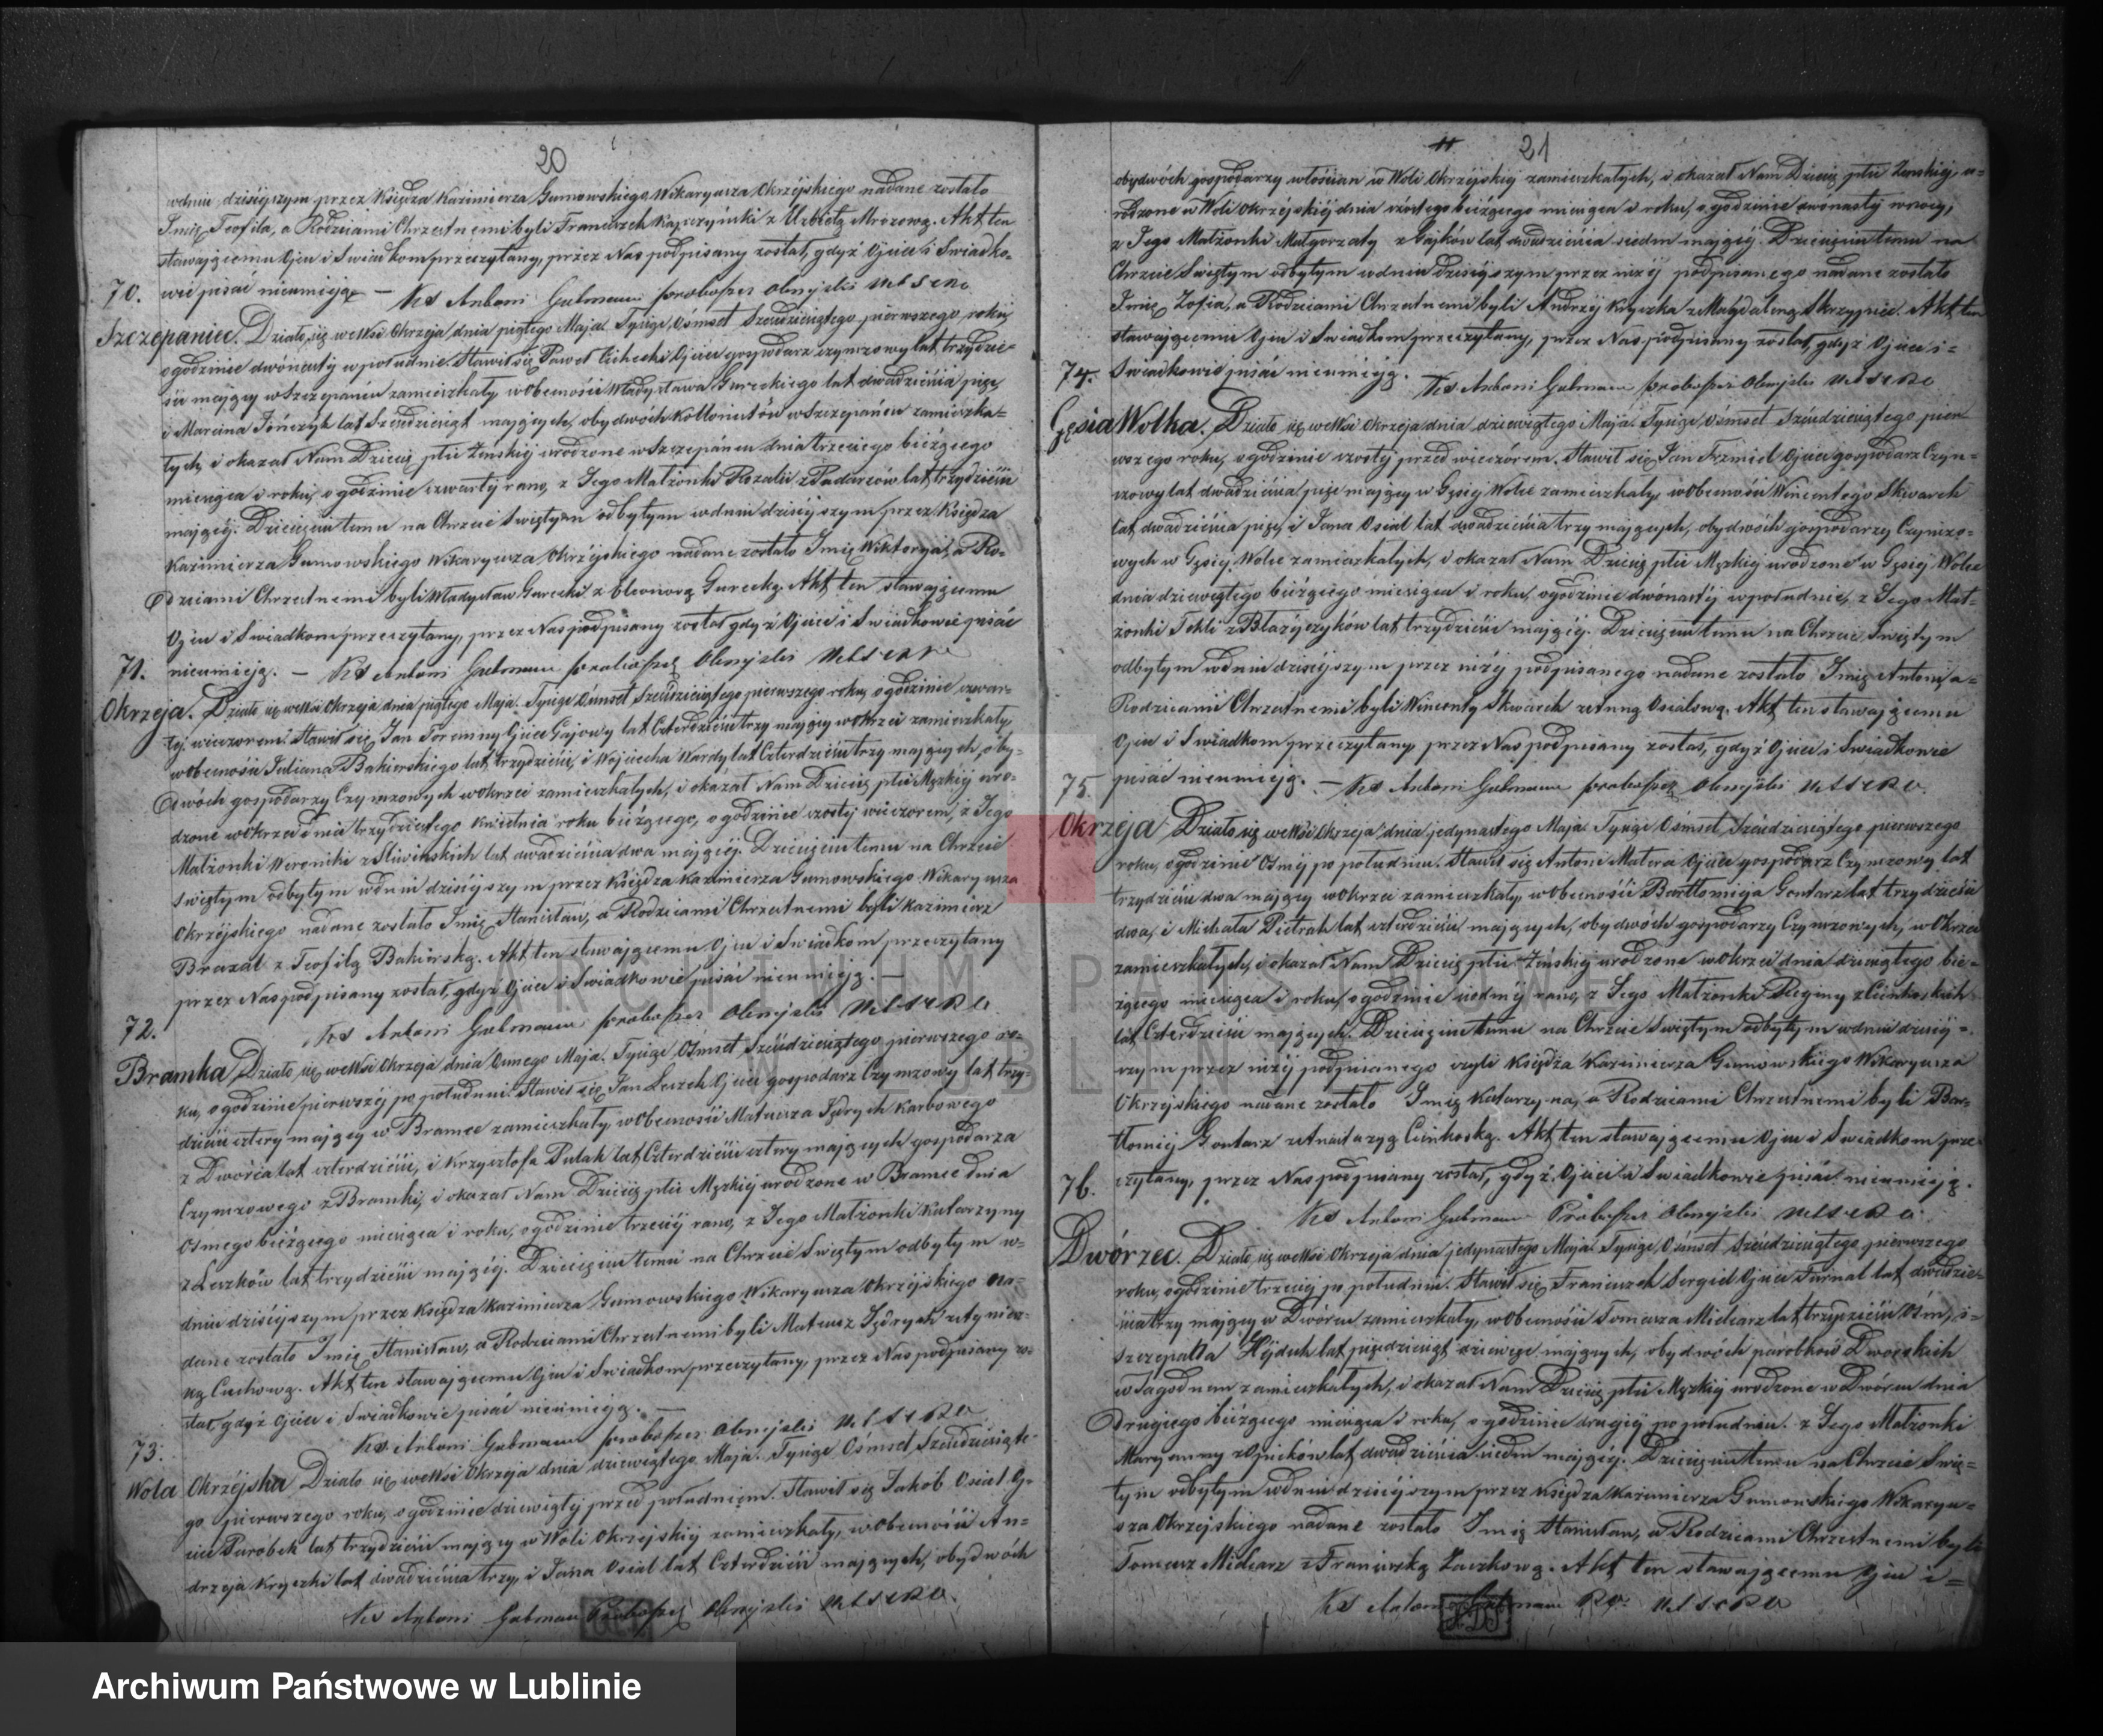 20
wdniu dzisiéjszym przez Księdza Kazimierza Gumowskiego Wikaryusza Okrzéjskiego nadane zostało
Imię Teofila, a Rodzicami Chrzestnemi byli Franciszek Kapczyński z Elżbietą Mrozową. Akt ten
stawającemu Ojcu i Świadkom przeczytany, przez Nas podpisany został, gdyż Ojciec i Świadko-
wie pisać nieumieją — Ks Antoni
70.
Szczepaniec. Działo się wewsi Okrzeja dnia piątego Maja Tysiąc Ośmset Sześćdziesiątego pierwszego roku,
o godzinie dwónasty wpołudnie. Stawił się Paweł Cichecki Ojciec gospodarz czynszowy lat trzydzie-
ści mający w Szczepańcu zamieszkały, w obecności Władysława Gureckiego lat dwadzieścia pięć,
i Marcina Jończyk lat Sześćdziesiąt mających, obydwóch Kollonistów w Szczepańcu zamieszka-
łych, i okazał Nam Dziecię płci Żenskiéj urodzone w Szczepańcu dnia trzeciego bieżącego
miesiąca i roku, o godzinie czwarty rano, z Jego Małżonki Rozalii z lat trzydzieści
mającéj. Dziecięciu temu na Chrzcie Świętym odbytym wdniu dzisiéjszym przez Księdza
Kazimierza Gumowskiego Wikaryusza Okrzéjskiego nadane zostało Imię Wiktorya, a Ro-
dzicami Chrzestnemi byli Władysław Gurecki z Eleonorą Gurecką. Akt ten stawającemu
Ojcu i Świadkom przeczytany, przez Nas podpisany został gdyż Ojciec i Świadkowie pisać
nieumieją. — Ks Antoni
71.
Okrzeja. Działo się wewsi Okrzeja dnia piątego Maja Tysiąc Ośmset Sześćdziesiątego pierwszego roku, o godzinie czwar-
téj wieczorem. Stawił się Jan Ojciec Gajowy lat Czterdzieści trzy mający w Okrzei zamieszkały,
w obecności Juliana Bakierskiego lat trzydzieści, i Wojciecha Wardy lat Czterdzieści trzy mających, oby-
dwóch gospodarzy Czynszowych w Okrzei zamieszkałych, i okazał Nam Dziecię płci Męzkiéj uro-
dzone w Okrzei dnia trzydziestego Kwietnia roku bieżącego, o godzinie szósty wieczorem, z Jego
Małżonki Weroniki z Śliwińskich lat dwadzieścia dwa mającéj. Dziecięciu temu na Chrzcie
Świętym odbytym wdniu dzisiéjszym przez Księdza Kazimierza Gumowskiego Wikaryusza
Okrzéjskiego nadane zostało Imię Stanisław, a Rodzicami Chrzestnemi byli Kazimierz
z Teofilą Bakierską. Akt ten stawającemu Ojcu i Świadkom przeczytany
przez Nas podpisany został, gdyż Ojciec i Świadkowie pisać nieumieją. —
Ks Antoni
72.
Bramka Działo się wewsi Okrzeja dnia Osmego Maja. Tysiąc Ośmset Sześćdziesiątego pierwszego ro-
ku, o godzinie pierwszéj po południu. Stawił się Jan Leszek Ojciec gospodarz Czynszowy lat trzy-
dzieści cztery mający w Bramce zamieszkały, w obecności Mateusza Jędrych Karbowego
z Dworca lat czterdzieści, i Krzysztofa Pulak lat Czterdzieści cztery mających gospodarza
Czynszowego z Bramki, i okazał Nam Dziecię płci Męzkiéj urodzone w Bramce dnia
Osmego bieżącego miesiąca i roku, o godzinie trzeciéj rano, z Jego Małżonki Katarzyny
z Leszków lat trzydzieści mającéj. Dziecięciu temu na Chrzcie Świętym odbytym w-
dniu dzisiéjszym przez Księdza Kazimierza Gumowskiego Wikaryusza Okrzéjskiego na-
dane zostało Imię Stanisław, a Rodzicami Chrzestnemi byli Mateusz Jędrych z
Akt ten stawającemu Ojcu i Świadkom przeczytany, przez Nas podpisany zo-
stał, gdyż Ojciec i Świadkowie pisać nieumieją. —
Ks Antoni
73.
Wola Okrzéjska Działo się wewsi Okrzeja dnia dziewiątego Maja. Tysiąc Ośmset Sześćdziesiąte-
go pierwszego roku, o godzinie dziewiątéj przed południem. Stawił się Jakób Osiał Oj-
ciec Parobek lat trzydzieści mający w Woli Okrzéjskiéj zamieszkały, w obecności An-
drzeja Kryczki lat dwadzieścia trzy, i Jana Osiał lat Czterdzieści mających, obydwóch
Ks Antoni
21
obydwóch gospodarzy włościan w Woli Okrzéjskiéj zamieszkałych, i okazał Nam Dziecię płci Żenskiéj, u-
rodzone w Woli Okrzéjskiéj dnia szóstego bieżącego miesiąca i roku, o godzinie dwónastéj w nocy,
z Jego Małżonki Małgorzaty z Gajków lat dwadzieścia siedm mającéj. Dziecięciu temu na
Chrzcie Świętym odbytym wdniu dzisiéjszym przez niżéj podpisanego nadane zostało
Imię Zofia, a Rodzicami Chrzestnemi byli Andrzéj Kryczka z Magdaleną Skrzypiec. Akt ten
stawającemu Ojcu i Świadkom przeczytany, przez Nas podpisany został, gdyż Ojciec i-
Świadkowie pisać nieumieją. Ks Antoni
74.
Gęsia Wolka. Działo się wewsi Okrzeja dnia dziewiątego Maja. Tysiąc Ośmset Sześćdziesiątego pier-
wszego roku, o godzinie szóstéj przed wieczórem. Stawił się Jan Trzmiel Ojciec gospodarz Czyn-
szowy lat dwadzieścia pięć mający w Gęsiéj Wolce zamieszkały, w obecności Wincentego Skwarek
lat dwadzieścia pięć, i Jana Osiał lat dwadzieścia trzy mających, obydwóch gospodarzy Czynszo-
wych w Gęsiéj Wolce zamieszkałych, i okazał Nam Dziecię płci Męzkiéj urodzone w Gęsiéj Wolce
dnia dziewiątego bieżącego miesiąca i roku, o godzinie dwónastéj wpołudnie, z Jego Mał-
żonki Tekli z Błażéjczyków lat trzydzieści mającéj. Dziecięciu temu na Chrzcie Świętym
odbytym wdniu dzisiéjszym przez niżéj podpisanego nadane zostało Imię Antoni, a-
Rodzicami Chrzestnemi byli Wincenty Skwarek z Anną Osiałową. Akt ten stawającemu
Ojcu i Świadkom przeczytany, przez Nas podpisany został, gdyż Ojciec i Świadkowie
pisać nieumieją. — Ks Antoni
75.
Okrzeja Działo się wewsi Okrzeja dnia jedynastego Maja Tysiąc Ośmset Sześćdziesiątego pierwszego
roku, o godzinie Osméj po południu. Stawił się Antoni Matera Ojciec gospodarz Czynszowy lat
trzydzieści dwa mający w Okrzei zamieszkały, w obecności Bartłomieja Gontarz lat trzydzieści
dwa, i Michała Pietrak lat czterdzieści mających, obydwóch gospodarzy Czynszowych, w Okrzei
zamieszkałych, i okazał Nam Dziecię płci Żenskiéj urodzone w Okrzei dnia dziesiątego bie-
żącego miesiąca i roku, o godzinie siódméj rano, z Jego Małżonki Reginy z
lat Czterdzieści mających. Dziecięciu temu na Chrzcie Świętym odbytym wdniu dzisiéj-
szym przez niżéj podpisanego czyli Księdza Kazimierza Gumowskiego Wikaryusza
Okrzéjskiego nadane zostało Imię Katarzyna, a Rodzicami Chrzestnemi byli Bar-
tłoméj Gontarz z Anastazyą Akt ten stawającemu Ojcu i Świadkom prze-
czytany, przez Nas podpisany został, gdyż Ojciec i Świadkowie pisać nieumieją.
Ks Antoni
76.
Dwórzec. Działo się wewsi Okrzeja dnia jedynastego Maja Tysiąc Ośmset Sześćdziesiątego pierwszego
roku, o godzinie trzeciéj po południu. Stawił się Franciszek Sergiel Ojciec Furnal lat dwadzie-
ścia trzy mający w Dwórcu zamieszkały, w obecności Tomasza Mielcarz lat trzydzieści Ośm, i-
Szczepana Hajduk lat pięćdziesiąt dziewięć mających, obydwóch parobków Dworskich
w Jagodnem zamieszkałych, i okazał Nam Dziecię płci Męzkiéj urodzone w Dwórcu dnia
drugiego bieżącego miesiąca i roku, o godzinie drugiéj po południu. z Jego Małżonki
Maryanny z lat dwadzieścia siedm mającéj. Dziecięciu temu na Chrzcie Świę-
tym odbytym wdniu dzisiéjszym przez Księdza Kazimierza Gumowskiego Wikaryu-
sza Okrzéjskiego nadane zostało Imię Stanisław, a Rodzicami Chrzestnemi byli
Tomasz Mielcarz z Franciszką Akt ten stawającemu Ojcu i-
Ks Antoni
ARCHIWUM PAŃSTWOWE
W LUBLINIE
Archiwum Państwowe w Lublinie